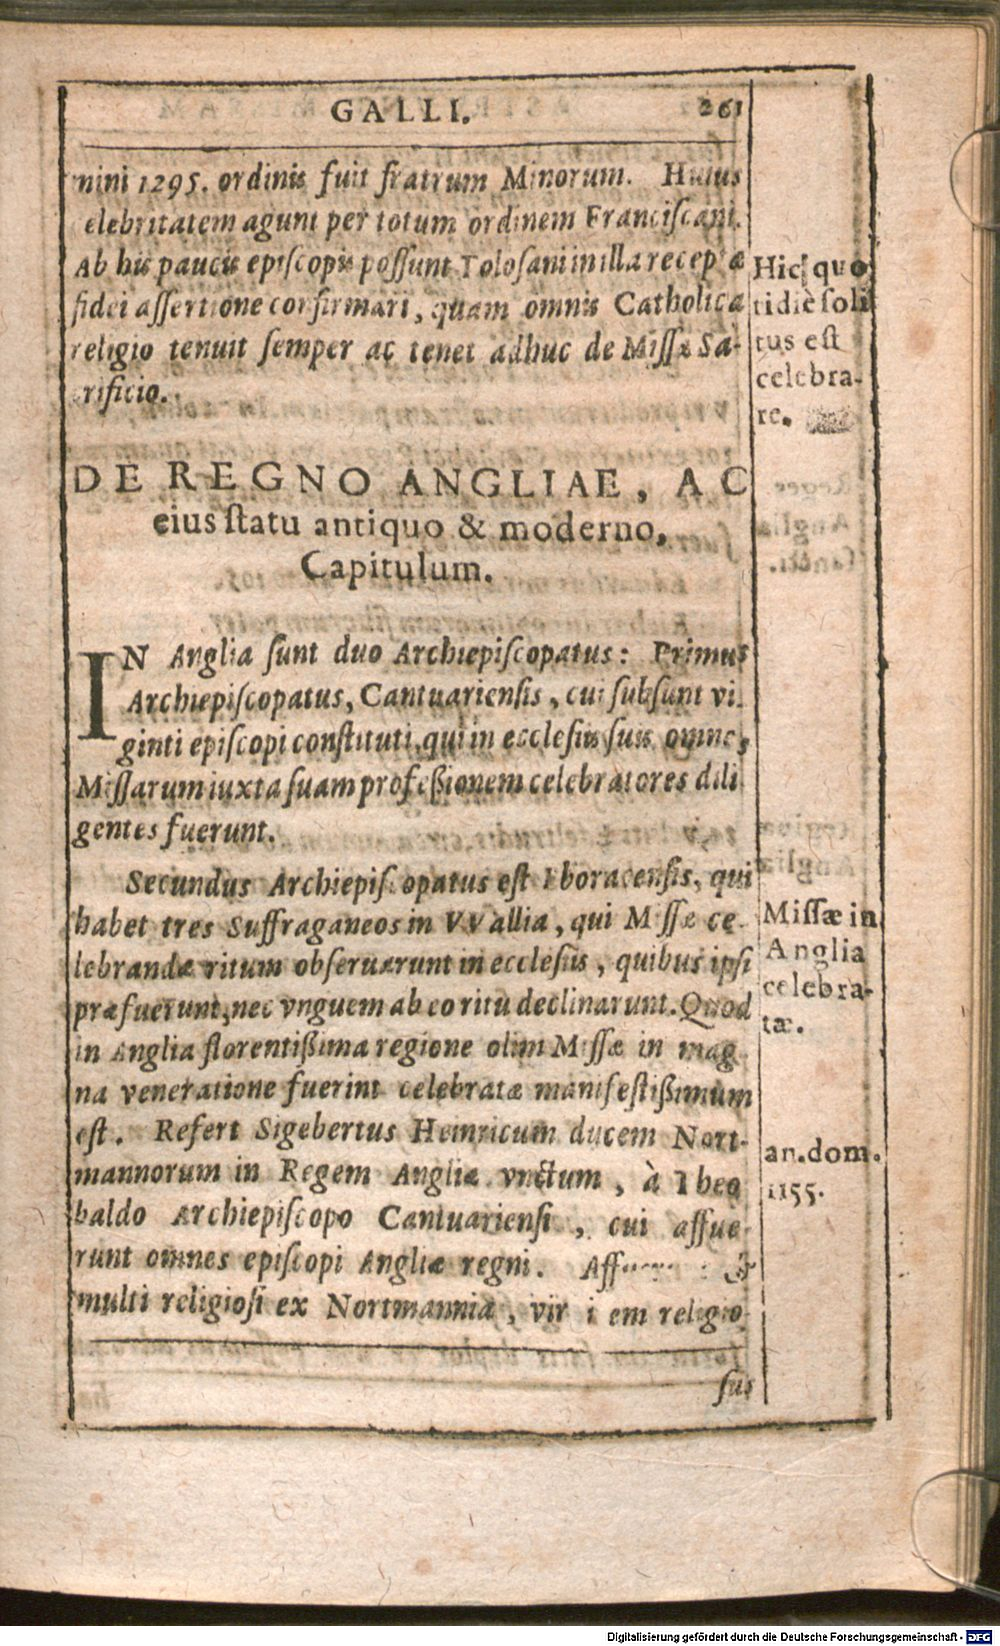 GALLI. 261
mini 1295. ordinis fuit fratrum Minorum. Huius
celebritatem agunt per totum ordinem Franciscani.
Ab his paucis episcopis possunt Tolosani in illa receptæ
fidei assertione confirmari, quam omnis Catholica
religio tenuit semper ac tenet adhuc de Missæ Sa-
crificio.
Hic quo
tidiè soli
tus est
celebra-
re.
DE REGNO ANGLIAE, AC
eius statu antiquo & moderno,
Capitulum.
IN Anglia sunt duo Archiepiscopatus: Primus
Archiepiscopatus, Cantuariensis, cui subsunt vi-
ginti episcopi constituti, qui in ecclesiis suis omnes
Missarum iuxta suam professionem celebratores dili
gentes fuerunt.
Secundus Archiepiscopatus est Iboracensis, qui
habet tres Suffraganeos in VVallia, qui Missæ ce-
lebrandæ ritum obseruarunt in ecclesiis, quibus ipsi
præfuerunt, nec vnguem ab eo ritu declinarunt. Quod
in Anglia florentissima regione olim Missæ in mag-
na veneratione fuerint celebratæ manifestissimum
est. Refert Sigebertus Henricum ducem Nort-
mannorum in Regem Angliæ vnctum, à Theo
baldo Archiepiscopo Cantuariensi, cui affue-
runt omnes episcopi Angliæ regni. &
multi religiosi ex Nortmannia, religio-
sus
Missæ in
Anglia
celebra-
tæ.
an. dom.
1155.
Digitalisierung gefördert durch die Deutsche Forschungsgemeinschaft - DFG